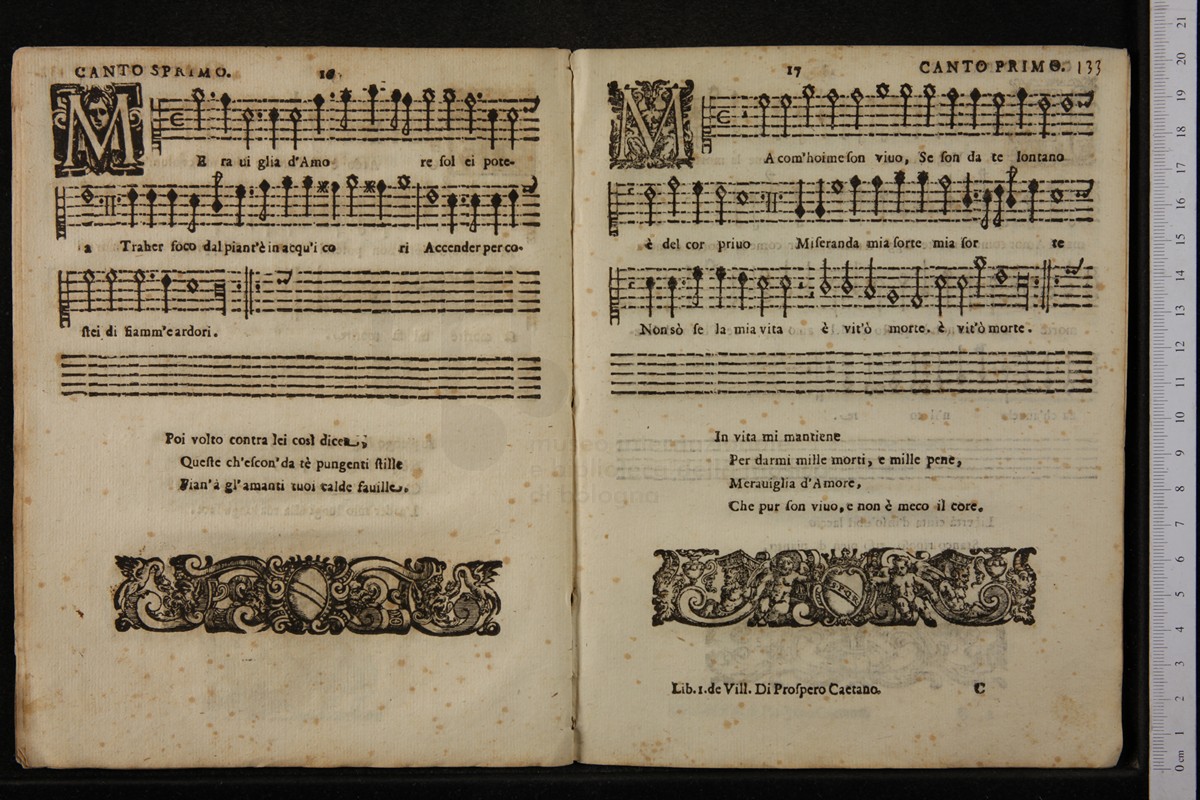 CANTO SPRIMO. 16
M
E ra ui glia d'Amo re ſol ei pote-
a Traher foco dal piant'è in acqu'i co ri Accender per co-
ſtei di fiamm'e ardori.
Poi volto contra lei così dicea,
Queſte ch'eſcon' da tè pungenti ſtille
Fian'à gl'amanti tuoi calde fauille.
17 CANTO PRIMO. 133
M
A com'hoime ſon viuo, Se ſon da te lontano
è del cor priuo Miſeranda mia ſorte mia ſor te
Non sò ſe la mia vita è vit'ò morte. è vit'ò morte.
In vita mi mantiene
Per darmi mille morti, e mille pene,
Merauiglia d'Amore,
Che pur ſon viuo, e non è meco il core.
Lib. 1. de Vill. Di Proſpero Caetano. C
0 cm 1 2 3 4 5 6 7 8 9 10 11 12 13 14 15 16 17 18 19 20 21